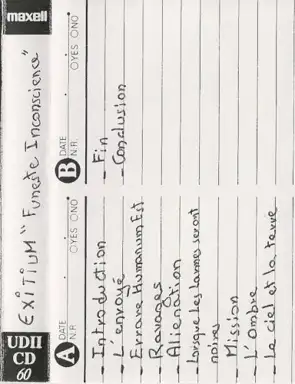 maxell
UDII
CD
60
EXITIUM "Funeste Inconscience"
A DATE
N.R. OYES ONO
- Introduction
- L'envoyé
- Errare Humanum Est
- Ravages
- Alienation
- Lorsque les larmes seront
noires
- Mission
- L'Ombre
- Le ciel et la terre
B DATE
N.R. OYES ONO
- Fin
- Conclusion